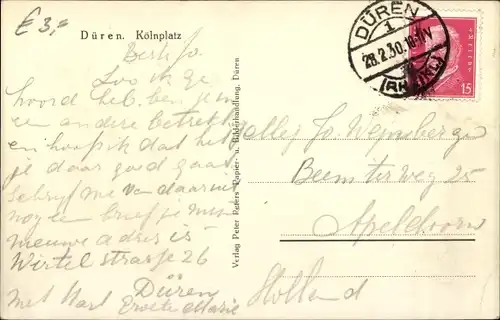 £ 3,=
Düren. Kölnplatz
Beste Jo.
Zoo ik ge
hoord heb. ben je in
een andere betrek
en hoop ik dat het
je daar goed gaat
Schrijf me van daar
nog een brief je mijn
nieuwe adres is
Wirtel strasse 26
Düren
met Hart Groete Marie
Verlag Peter Peters, Papier- u. Bilderhandlung, Düren
DÜREN
1
28.2.30.
(RHLD)
15
Jo Weynsberger
Beemterweg 25
Apeldoorn
Holland